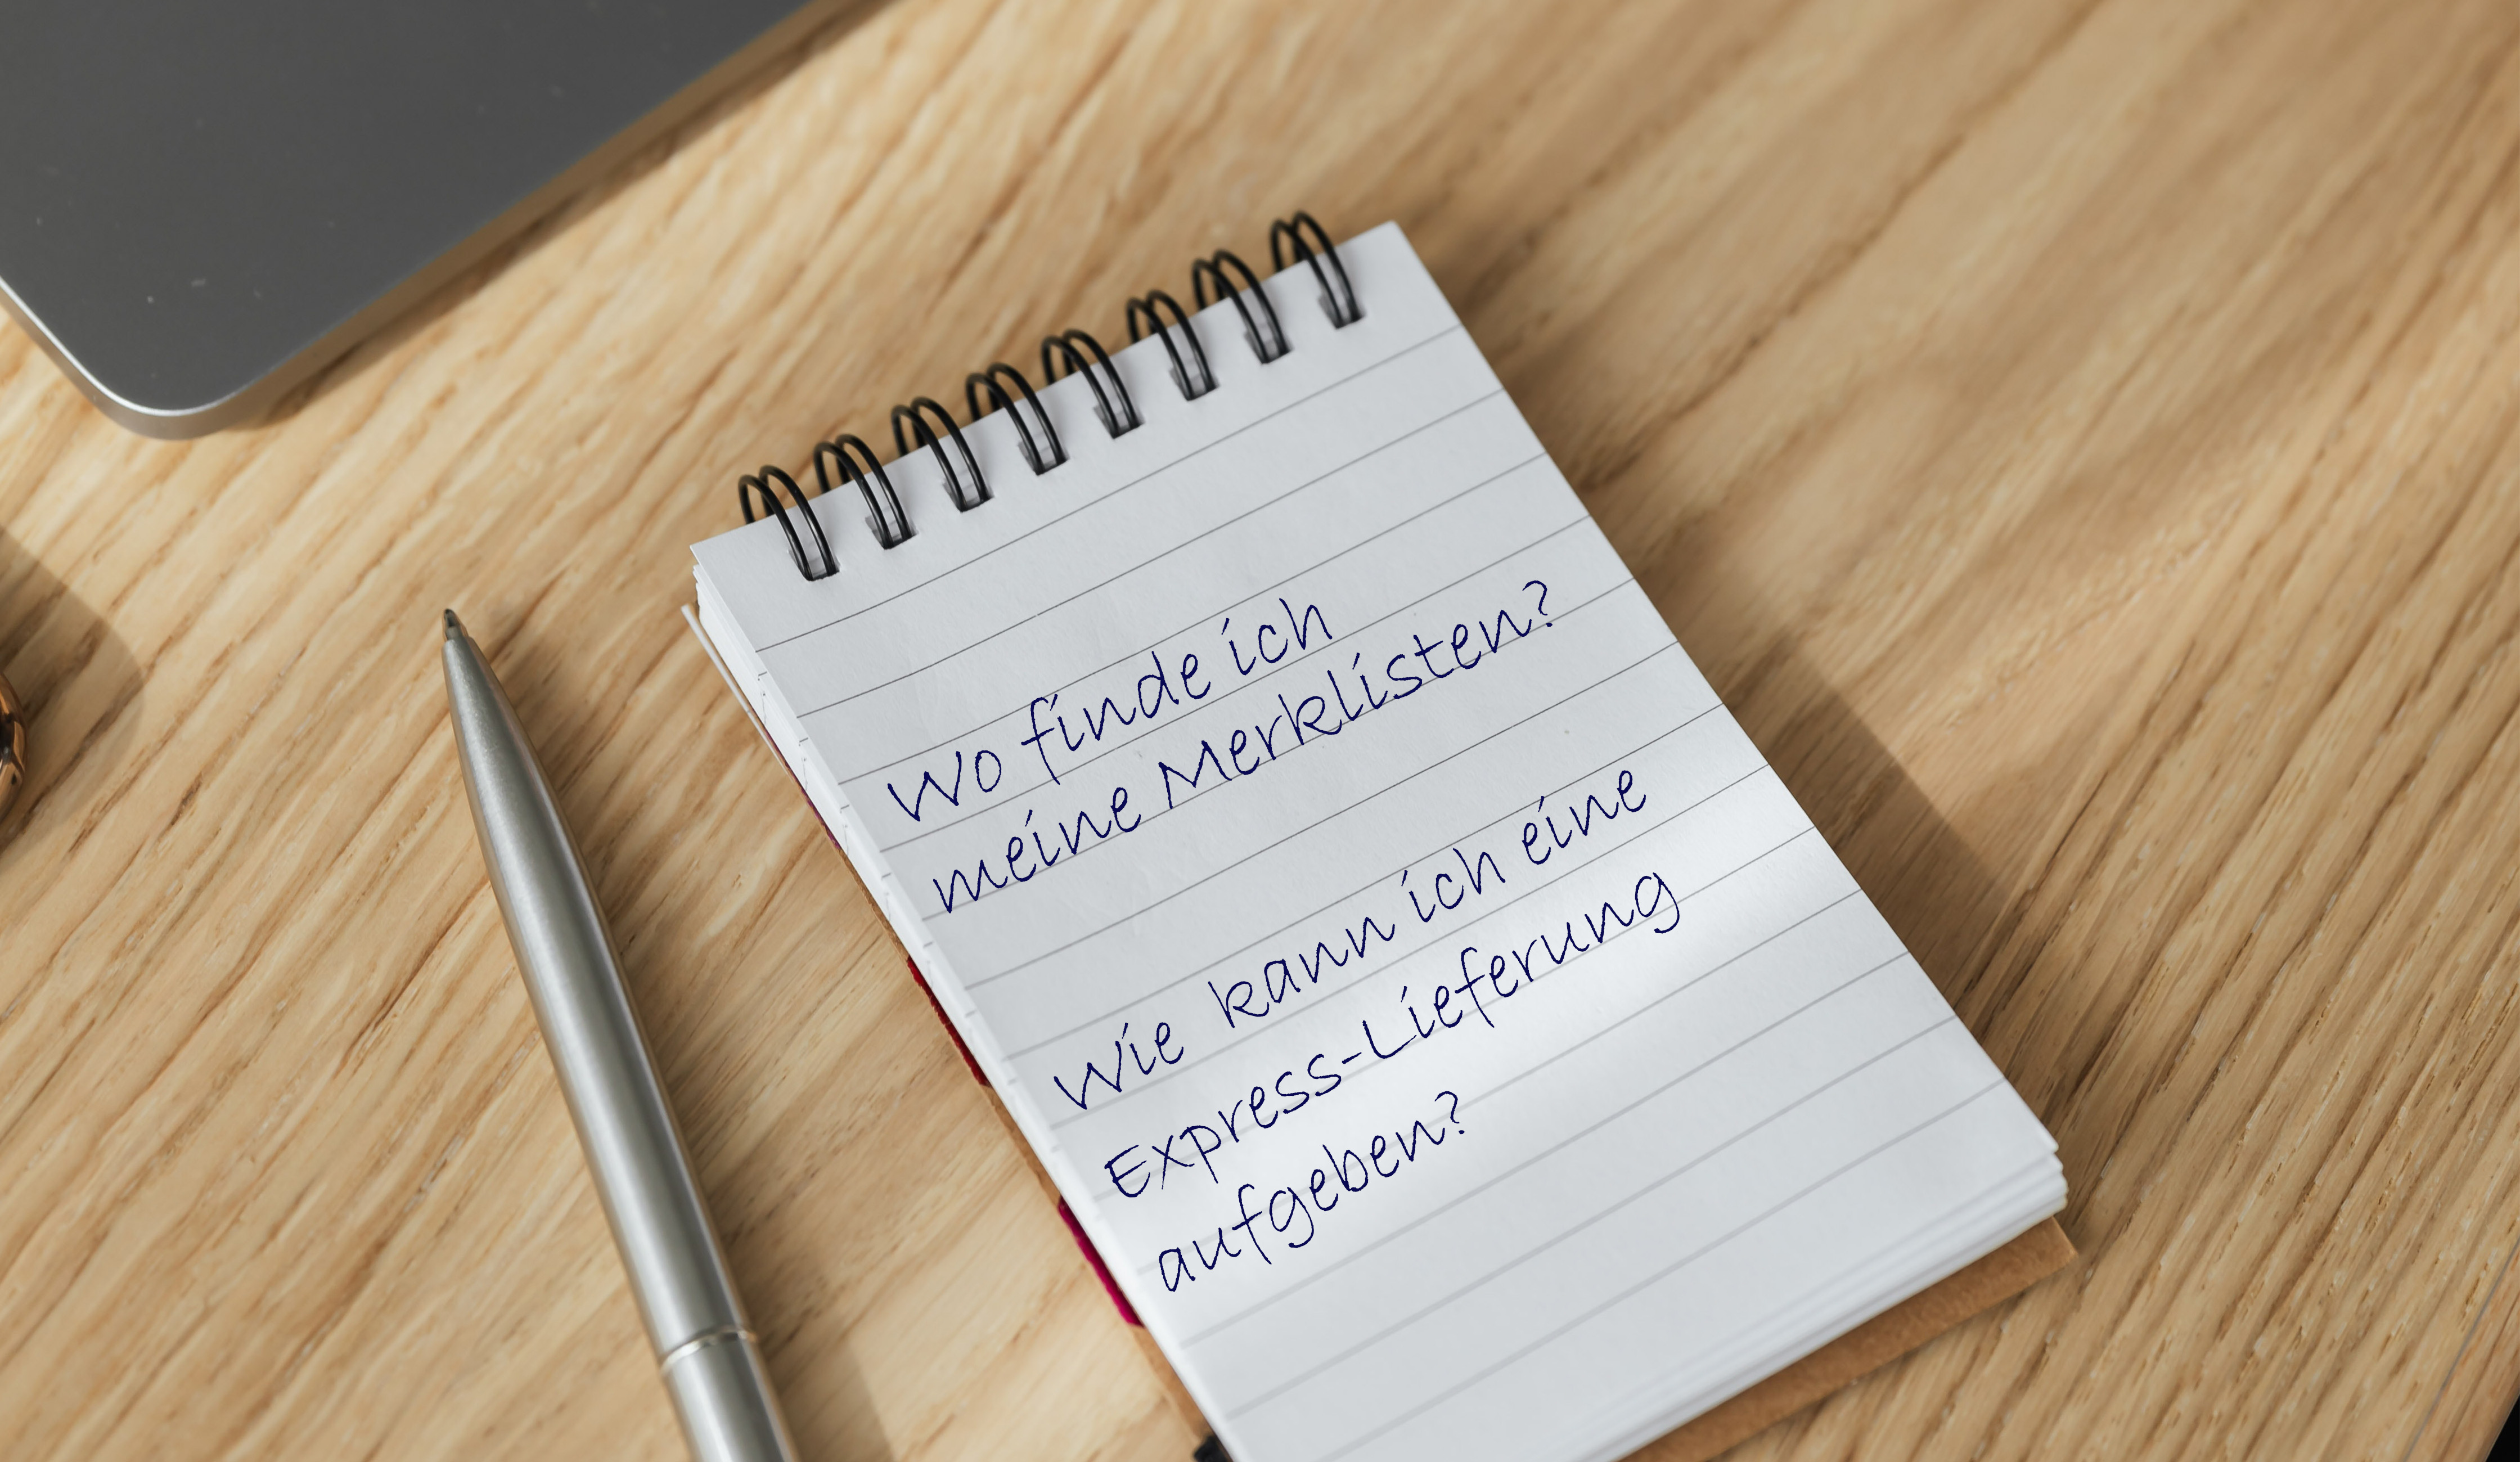 Wo finde ich
meine Merklisten?
Wie kann ich eine
Express-Lieferung
aufgeben?